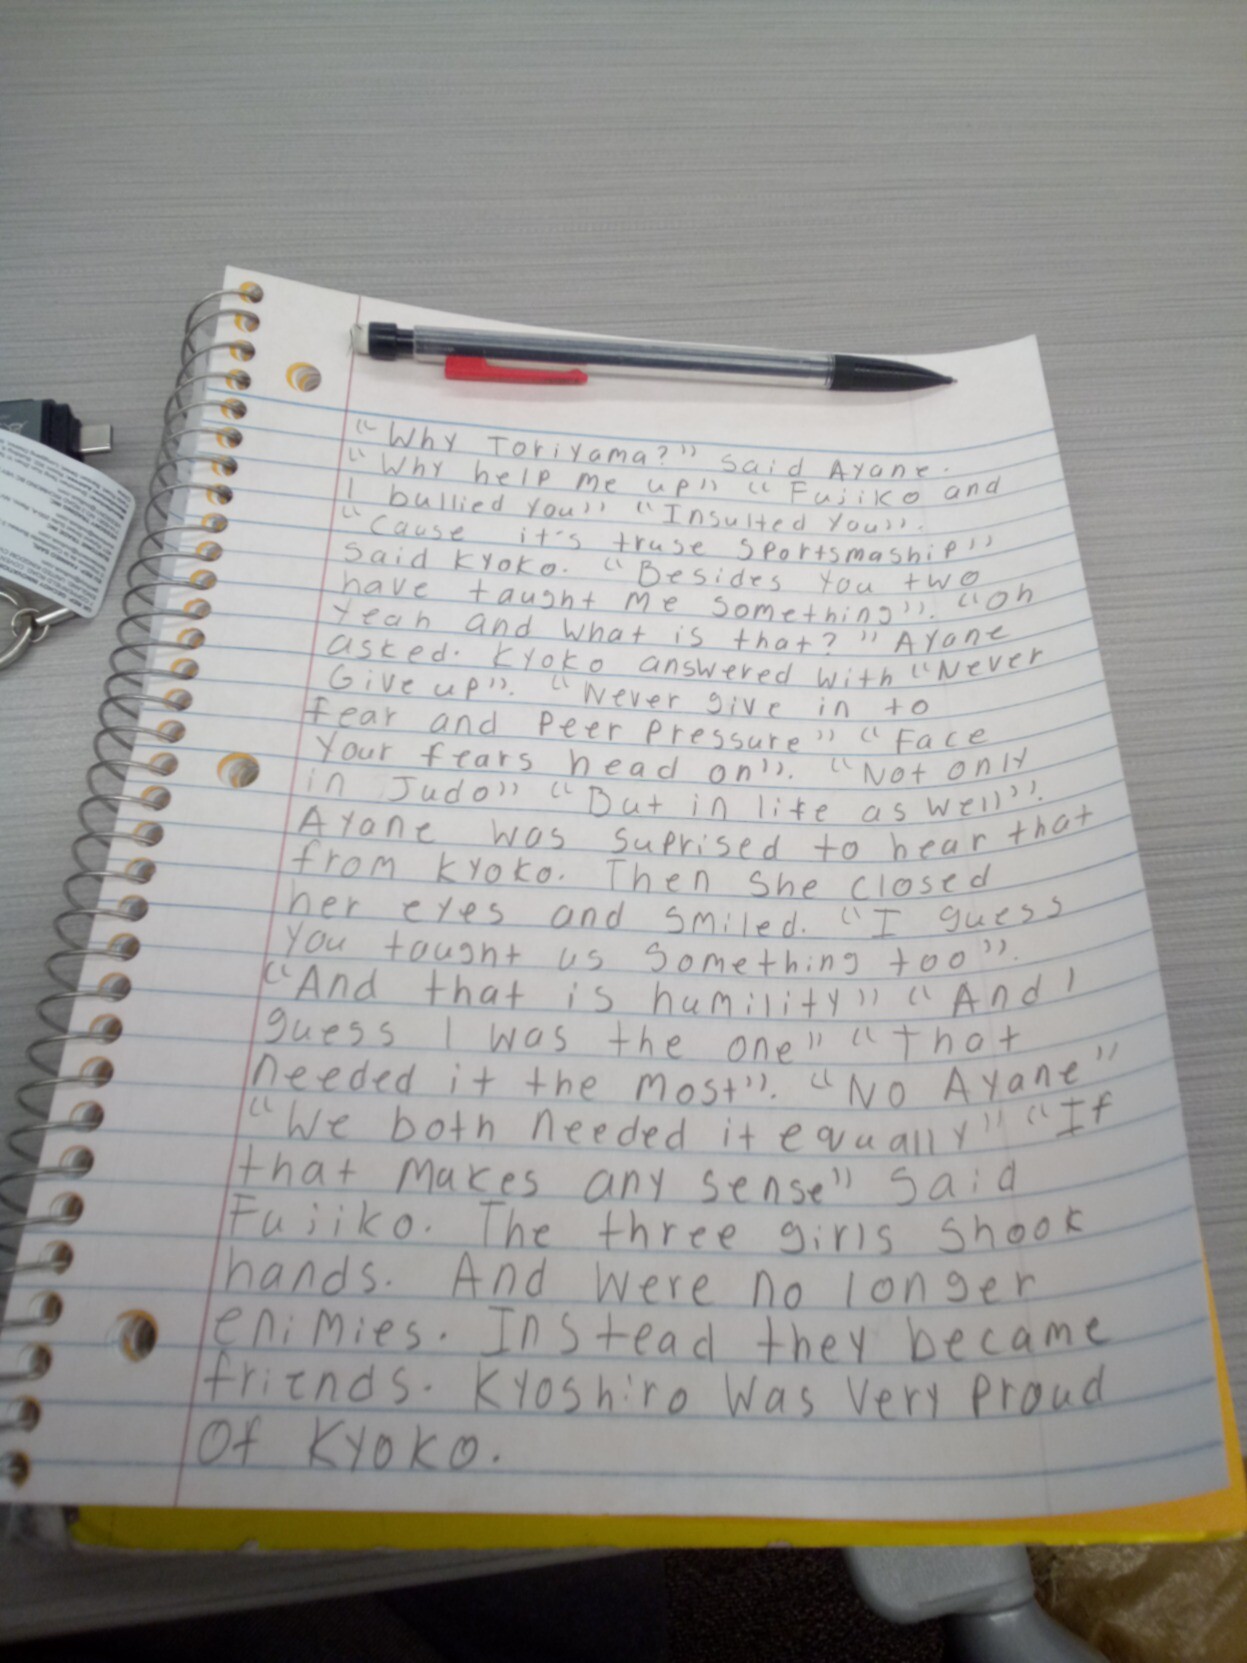 "Why Toriyama?" said Ayane.
"Why help me up" "Fujiko and
I bullied you" "Insulted you".
"Cause it's truse sportsmaship"
said Kyoko. "Besides you two
have taught me something". "Oh
yeah and what is that?" Ayane
asked. Kyoko answered with "Never
Give up". "Never give in to
fear and peer pressure" "Face
your fears head on". "Not only
in Judo" "But in life as well".
Ayane was suprised to hear that
from Kyoko. Then she closed
her eyes and smiled. "I guess
you taught us something too".
"And that is humility" "And I
guess I was the one" "That
needed it the most". "No Ayane"
"We both needed it equally" "If
that makes any sense" said
Fujiko. The three girls shook
hands. And were no longer
enimies. Instead they became
friends. Kyoshiro was very proud
of Kyoko.